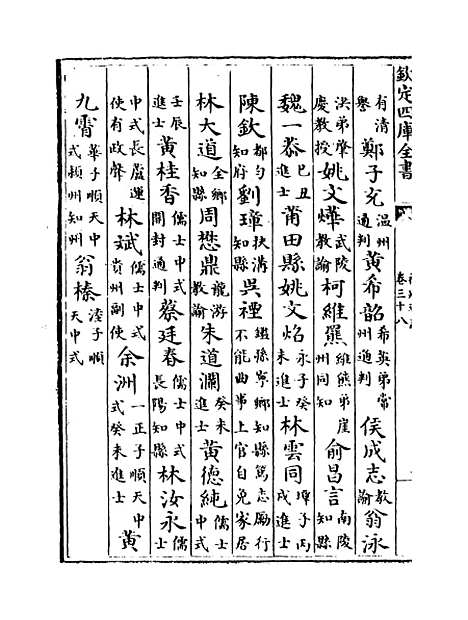 欽定四庫全書
卷三十八
有清譽鄭子充温州通判黄希韶希英弟常州通判侯成志教諭翁泳
洪弟肇慶教授姚文燁武陵教諭柯維羆維熊弟崖州同知俞昌言南陵知縣
魏一恭己丑進士莆田縣姚文焰永子癸未進士林雲同璋子丙戌進士
陳欽都匀知府劉璋扶溝知縣吳禋鑑孫寧鄉知縣篤志勵行不能曲事上官自免家居
林大道金鄉知縣周懋鼎龍游教諭朱道瀾癸未進士黄德純儒士中式
壬辰進士黄桂香儒士中式開封通判蔡廷春儒士中式長陽知縣林汝永儒士
中式長蘆運使有政聲林斌儒士中式貴州副使余洲一正子順天中式癸未進士黄
九霄華子順天中式楨州知州翁榛溱子順天中式